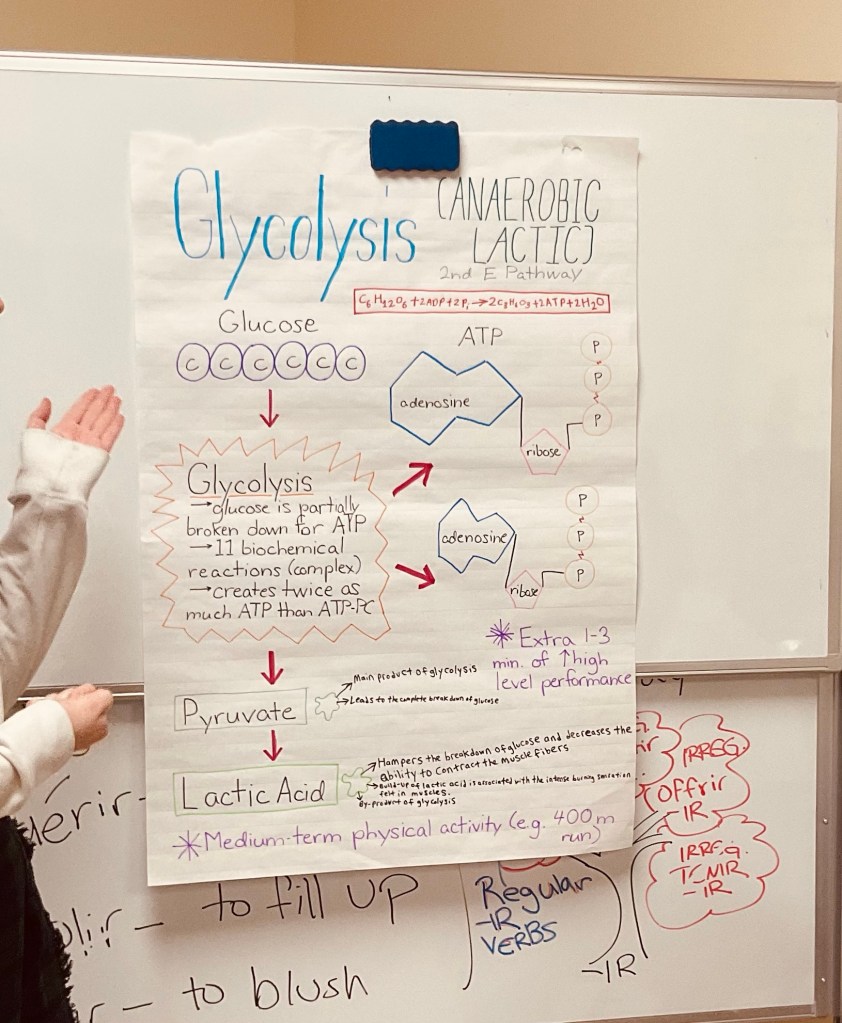 Glycolysis
(ANAEROBIC
LACTIC)
2nd E Pathway
C₆H₁₂O₆+2ADP+2Pᵢ→2C₃H₆O₃+2ATP+2H₂O
Glucose
C C C C C C
ATP
adenosine
ribose
P
P
P
Glycolysis
→glucose is partially
broken down for ATP
→11 biochemical
reactions (complex)
→creates twice as
much ATP than ATP-PC
adenosine
ribose
P
P
P
*Extra 1-3
min. of ↑high
level performance
Pyruvate
Main product of glycolysis
Leads to the complete breakdown of glucose
Lactic Acid
Hampers the breakdown of glucose and decreases the
ability to contract the muscle fibers
Build-up of lactic acid is associated with the intense burning sensation
felt in muscles.
By-product of glycolysis
*Medium-term physical activity (e.g. 400m
run)
érir-
to fill up
r - to blush
Regular
-IR
VERBS
-IR
IRREG.
Offrir
IR
IRREG.
-IR